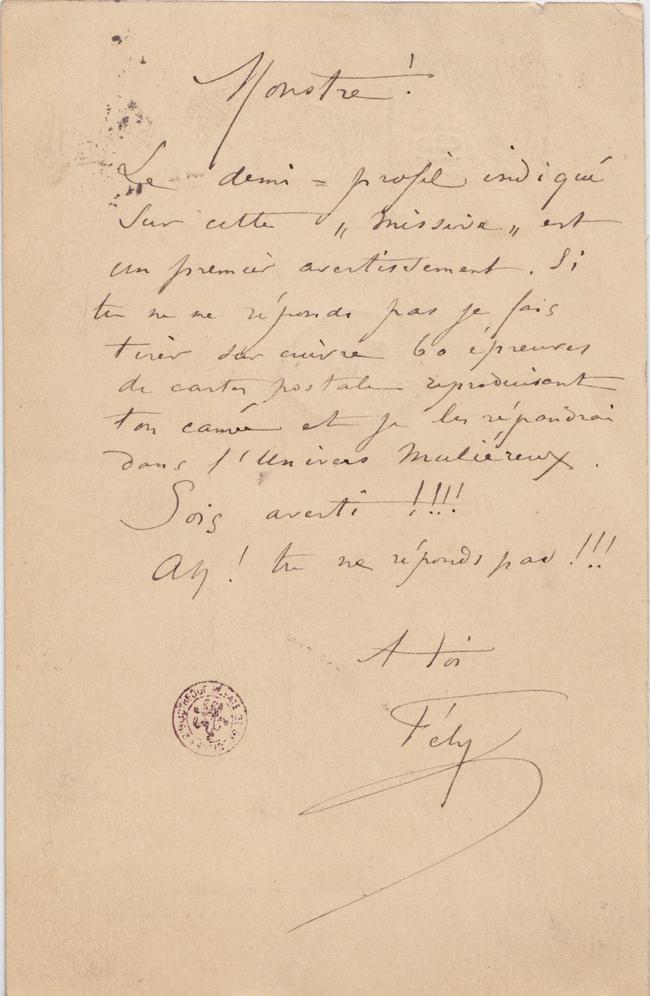 Monstre !
Le demi = profil indiqué
sur cette „ missive „ est
un premier avertissement. Si
tu ne me réponds pas je fais
tirer sur cuivre 60 épreuves
de cartes postales reproduisant
ton camée et je les répandrai
dans l'Univers Muliéreux.
Sois averti !!!!
Ah ! tu ne réponds pas !!!
A toi
Fély